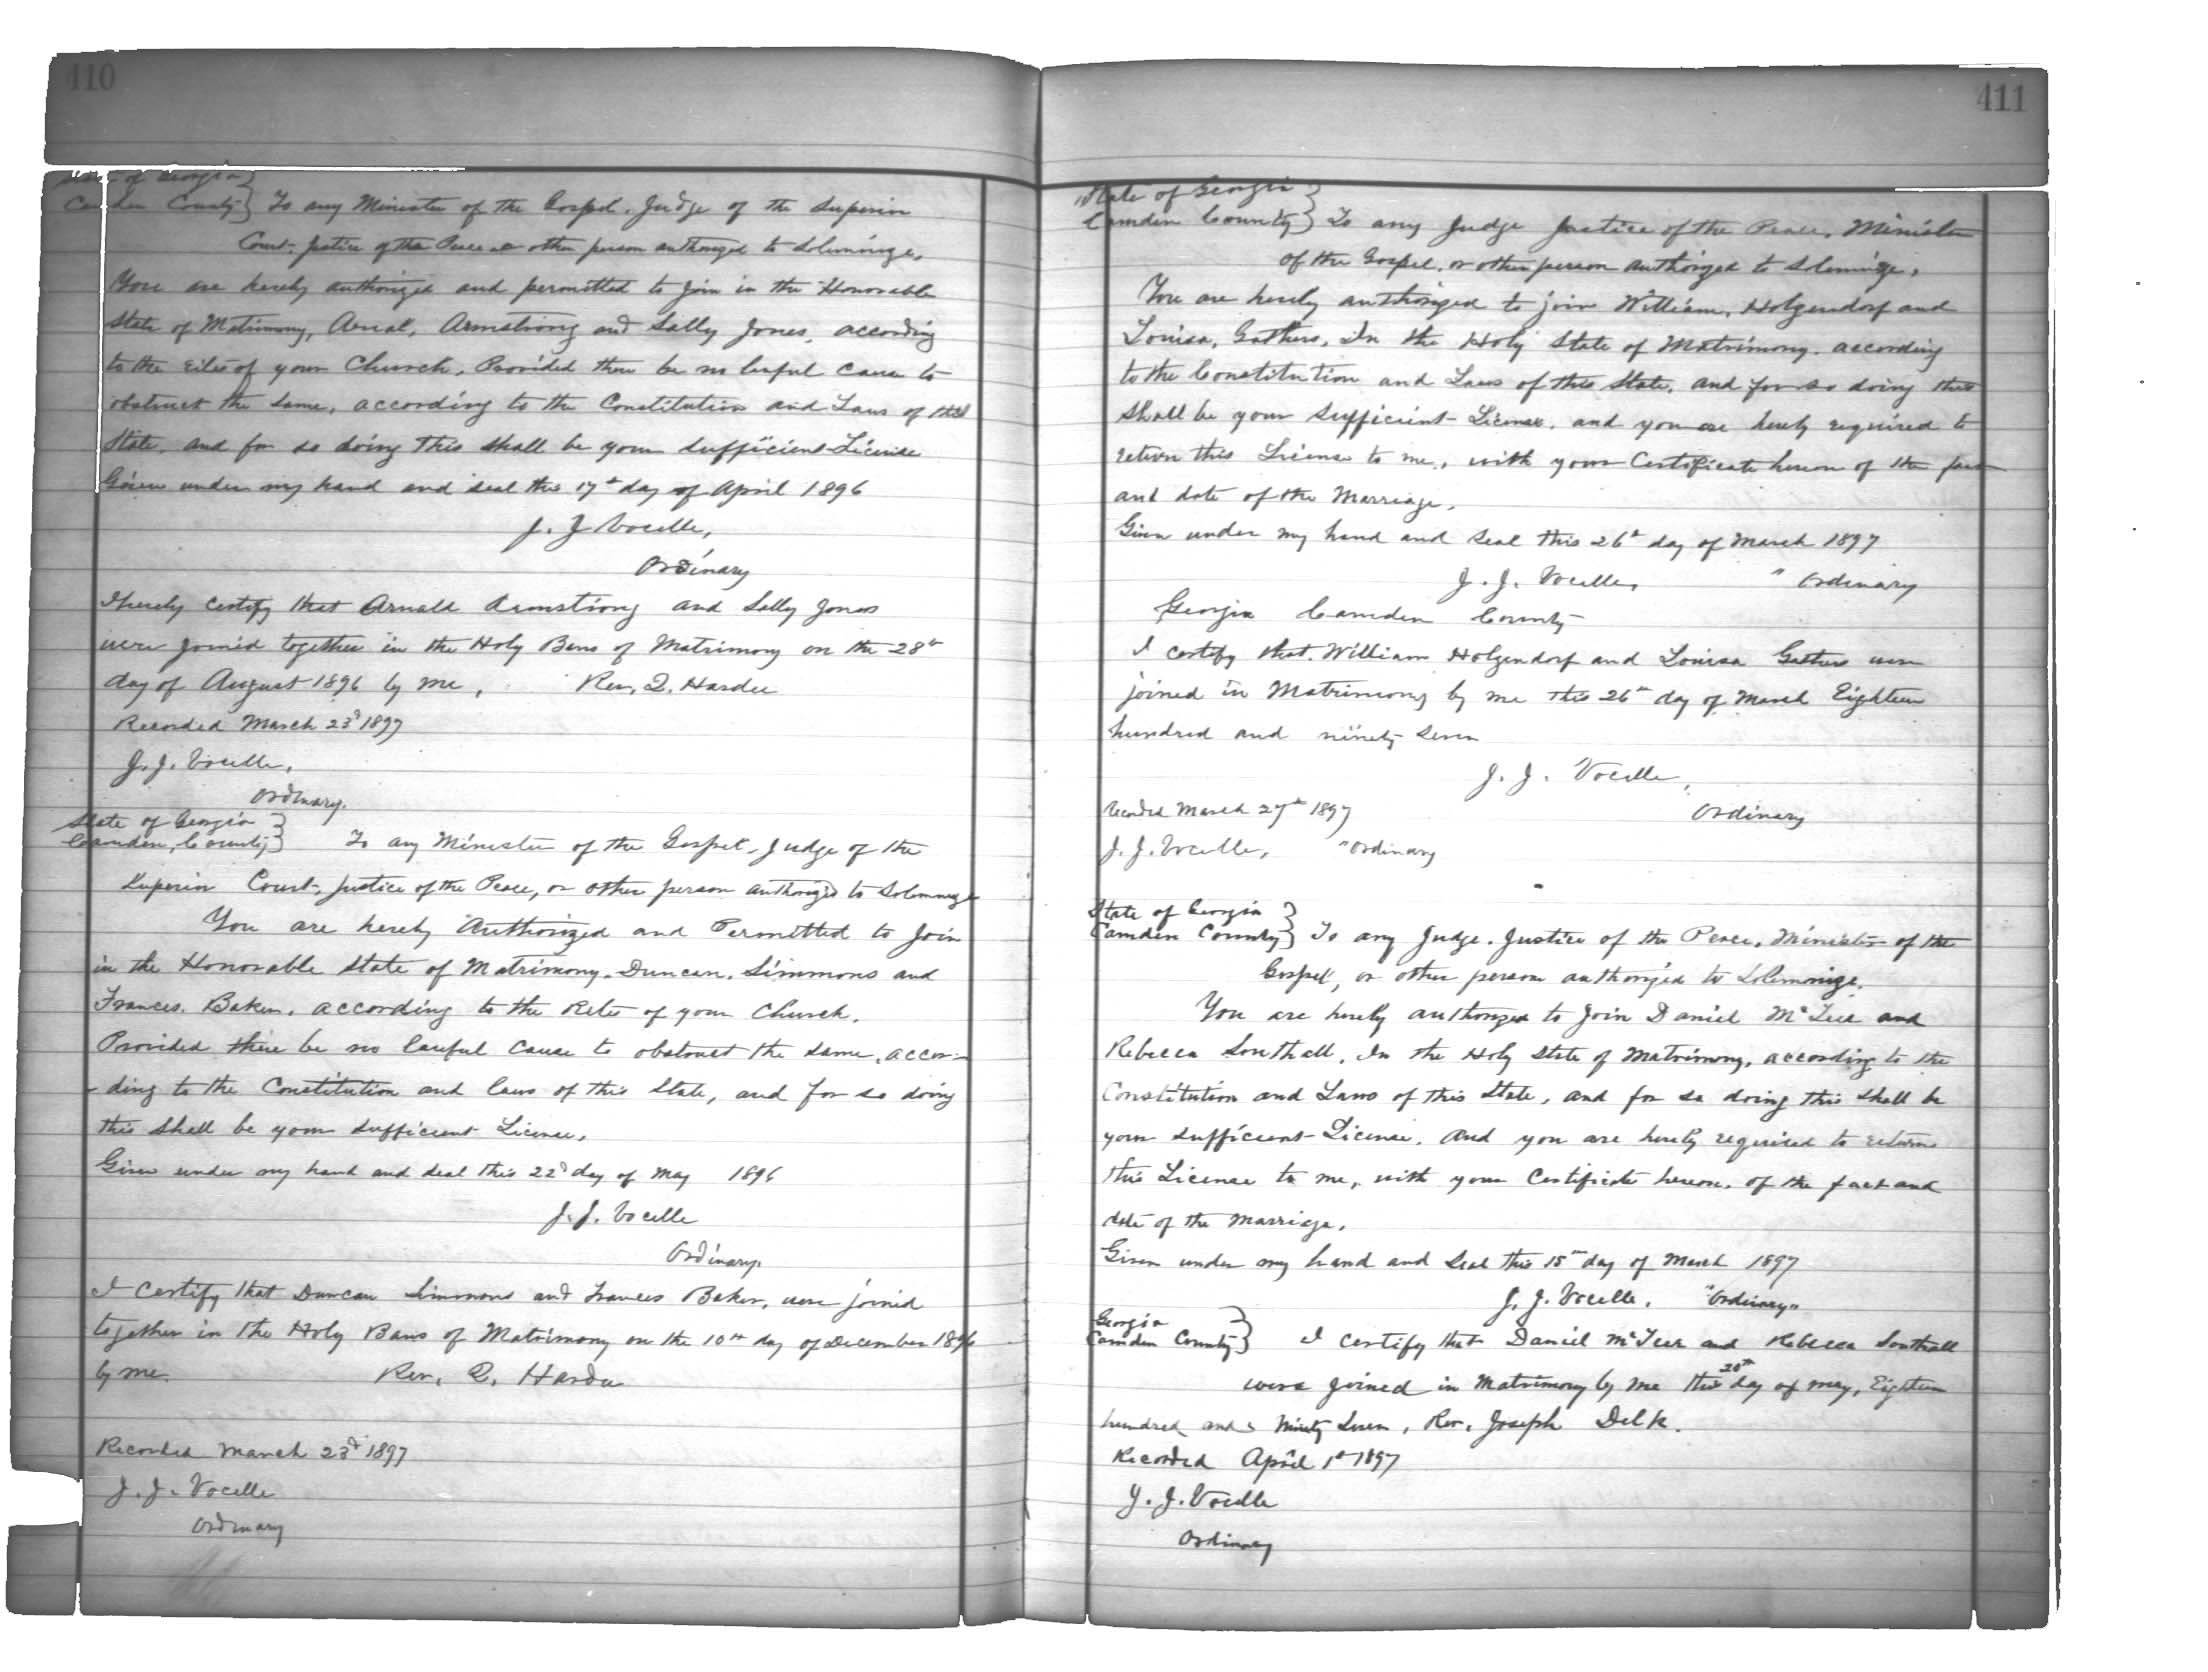 110
State of Georgia
Camden County } To any Minister of the Gospel, Judge of the Superior
Court, Justice of the Peace or other person authorized to Solemnize,
You are hereby authorized and permitted to join in the Honorable
State of Matrimony, Arnal, Armstrong and Sally Jones, according
to the rites of your Church, Provided there be no lawful cause to
obstruct the same, according to the Constitution and Laws of this
State, and for so doing this shall be your sufficient License
Given under my hand and seal this 17th day of April 1896
J. J Vocelle,
Ordinary
I hereby certify that Arnald Armstrong and Sally Jones
were joined together in the Holy Bans of Matrimony on the 28th
day of August 1896 by me, Rev, Q. Hardee
Recorded March 23d 1897
J. J. Vocelle,
Ordinary.
State of Georgia
Camden, County } To any Minister of the Gospel, Judge of the
Superior Court, Justice of the Peace, or other person authorized to Solemnize
You are hereby Authorized and Permitted to Join
in the Honorable State of Matrimony, Duncan, Simmons and
Frances. Baker, according to the Rites of your Church.
Provided there be no lawful cause to obstruct the same, accor-
-ding to the Constitution and laws of this State, and for so doing
this shall be your sufficient License,
Given under my hand and seal this 22d day of May 1896
J. J. Vocelle
Ordinary,
I certify that Duncan Simmons and Frances Baker, were joined
together in the Holy Bans of Matrimony on the 10th day of December 1896
by me. Rev, Q. Hardee
Recorded March 23d 1897
J. J. Vocelle
Ordinary
411
State of Georgia
Camden County } To any Judge Justice of the Peace, Minister
of the Gospel, or other person authorized to Solemnize,
You are hereby authorized to join William, Holzendorf and
Louisa, Gathers, In the Holy State of Matrimony, according
to the Constitution and Laws of this State, and for so doing this
shall be your sufficient License, and you are hereby required to
return this License to me, with your Certificate hereon of the fact
and date of the Marriage,
Given under my hand and seal this 26th day of March 1897
J. J. Vocelle, " Ordinary
Georgia Camden County
I certify that William Holzendorf and Louisa Gathers were
joined in Matrimony by me this 26th day of March Eighteen
hundred and ninety Seven
J. J. Vocelle,
Ordinary
Recorded March 27th 1897
J. J. Vocelle, "Ordinary
State of Georgia
Camden County } To any Judge, Justice of the Peace, Minister of the
Gospel, or other person authorized to Solemnize.
You are hereby authorized to Join Daniel McTeer and
Rebecca Southall, In the Holy State of Matrimony, according to the
Constitution and Laws of this State, and for so doing this shall be
your sufficient License, And you are hereby required to return
this License to me, with your Certificate hereon, of the fact and
date of the Marriage,
Given under my hand and Seal this 15th day of March 1897
J. J. Vocelle, "Ordinary"
Georgia
Camden County } I certify that Daniel McTeer and Rebecca Southall
were joined in Matrimony by me this 20th day of may, Eighteen
hundred and Ninety Seven, Rev, Joseph Delk.
Recorded April 1st 1897
J. J. Vocelle
Ordinary